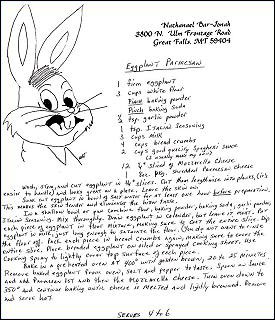 Nathanael Bar-Jonah
3800 N. Ulm Frontage Road
Great Falls, MT 59404
Eggplant Parmesan
1 firm eggplant
3 cups white flour
Pinch baking powder
Pinch baking soda
tsp garlic powder
1 tsp. Italian Seasoning
3 cups milk
4 cups bread crumbs
4 cups good quality Spaghetti Sauce
(I usually make my own)
12 slices of Mozzarella Cheese
1 8oz. pkg. shredded Parmesan Cheese
Wash, stem, and cut eggplant in slices. Cut them lengthwise into planks, (it's
easier to handle) and looks great on a plate. Leave the skin on.
Soak cut eggplant in bowl of salt water for at least one hour before preparation.
This makes the skin tender and eliminates the bitter taste.
In a shallow bowl or pan combine flour, baking powder, baking soda, garlic powder,
Italian Seasoning. Mix thoroughly. Drain eggplant in colander, but leave it moist. Put
each piece of eggplant in flour mixture, making sure to coat the entire slice. Dip
eggplant in milk, just long enough to saturate the flour. Do not want to rinse
the flour off. Pack each piece in bread crumbs again, making sure to cover the
entire slice. Place breaded eggplant on oiled or sprayed cooking sheet. Use
Cooking Spray to lightly cover top surface of each piece.
Bake in a preheated oven at 400° until golden brown, 20 to 25 minutes
Remove baked eggplant from oven, salt and pepper to taste. Spoon on Sauce
and add Parmesan 1st and then the Mozzarella Cheese. Turn oven down to
350° and continue baking until cheese is melted and lightly browned. Remove
and serve hot.
Serves 4 to 6